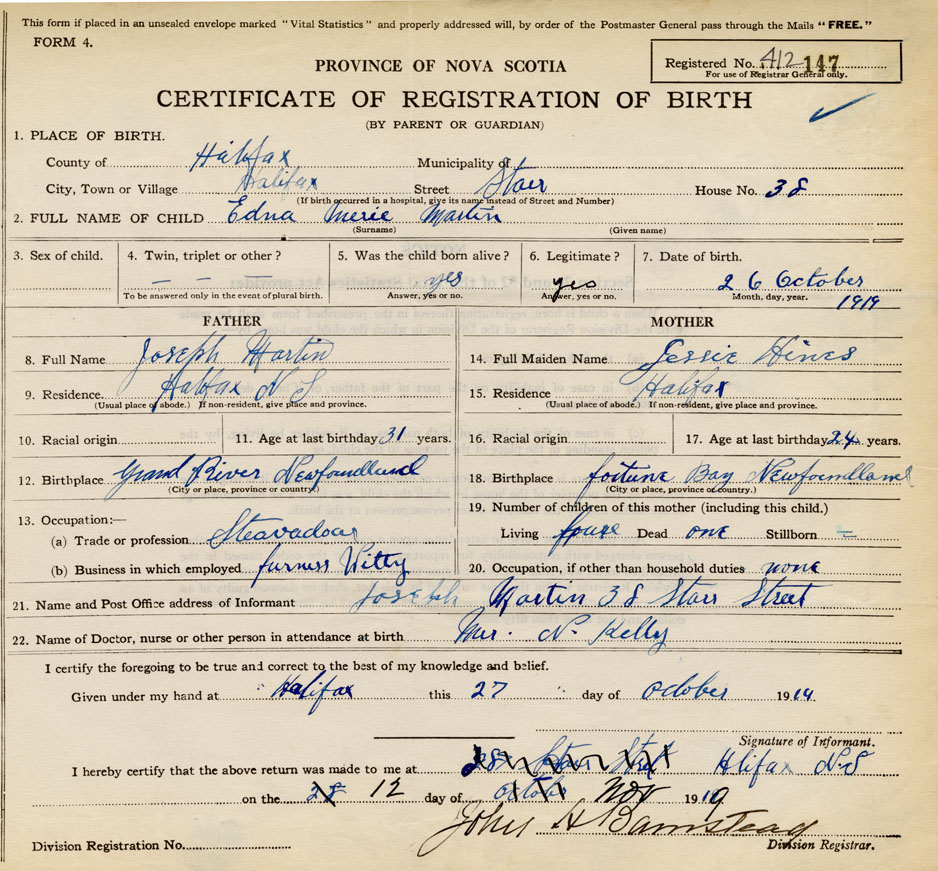 This form if placed in an unsealed envelope marked "Vital Statistics" and properly addressed will, by order of the Postmaster General pass through the Mails "FREE."
FORM 4.
Registered No. 412 147
For use of Registrar General only.
PROVINCE OF NOVA SCOTIA
CERTIFICATE OF REGISTRATION OF BIRTH
(BY PARENT OR GUARDIAN)
1. PLACE OF BIRTH.
County of Halifax Municipality of
City, Town or Village Halifax Street Starr House No. 38
(If birth occurred in a hospital, give its name instead of Street and Number)
2. FULL NAME OF CHILD Edna Merie Martin
(Surname) (Given name)
3. Sex of child. 4. Twin, triplet or other? 5. Was the child born alive? 6. Legitimate? 7. Date of birth.
— — — yes yes 26 October
To be answered only in the event of plural birth. Answer, yes or no. Answer, yes or no. Month, day, year. 1919
FATHER MOTHER
8. Full Name Joseph Martin 14. Full Maiden Name Jessie Hines
9. Residence. Halifax N S 15. Residence Halifax
(Usual place of abode.) If non-resident, give place and province. (Usual place of abode.) If non-resident, give place and province.
10. Racial origin 11. Age at last birthday 31 years. 16. Racial origin 17. Age at last birthday 24 years.
12. Birthplace Grand River Newfoundland 18. Birthplace fortune Bay Newfoundland
(City or place, province or country) (City or place, province or country.)
13. Occupation:— 19. Number of children of this mother (including this child.)
(a) Trade or profession Steavadoar Living foure Dead one Stillborn =
(b) Business in which employed furness Witty 20. Occupation, if other than household duties none
21. Name and Post Office address of Informant Joseph Martin 38 Starr Street
22. Name of Doctor, nurse or other person in attendance at birth Mrs. N. Kelly
I certify the foregoing to be true and correct to the best of my knowledge and belief.
Given under my hand at Halifax this 27 " day of October 1919.
Signature of Informant.
I hereby certify that the above return was made to me at 38 Starr Street Halifax N.S
on the 28 12 day of October Nov 1919
John H Barnstead
Division Registration No. Division Registrar.